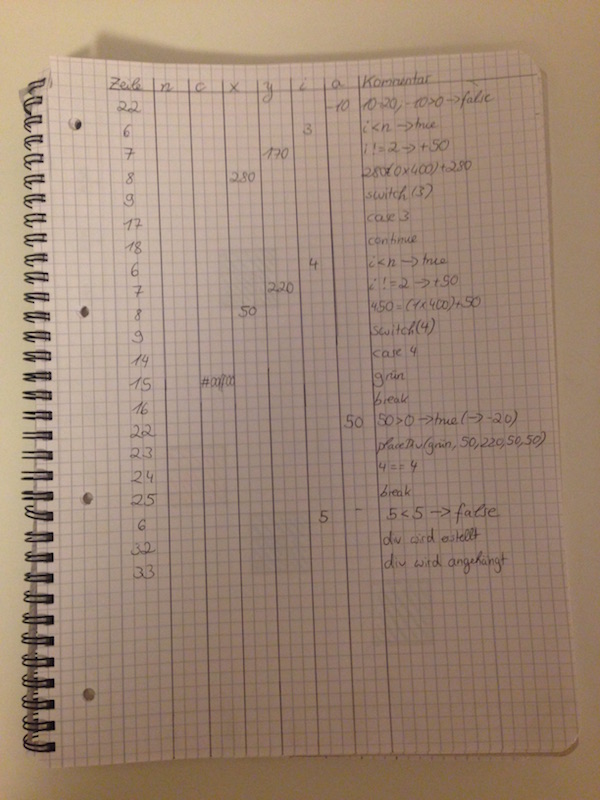 Zeile n c x y i a Kommentar
22 -10 10-20; -10>0 -> false
6 3 i<n -> true
7 170 i!=2 -> +50
8 280 280%(0x400)+280
9 switch(3)
17 case 3
18 continue
6 4 i<n -> true
7 220 i!=2 -> +50
8 50 450=(1x400)+50
9 switch(4)
14 case 4
15 #00ff00 grün
16 break
22 50 50>0 -> true (-> -20)
23 placeDiv(grün, 50,220,50,50)
24 4==4
25 break
6 5 - 5<5 -> false
32 div wird erstellt
33 div wird angehängt